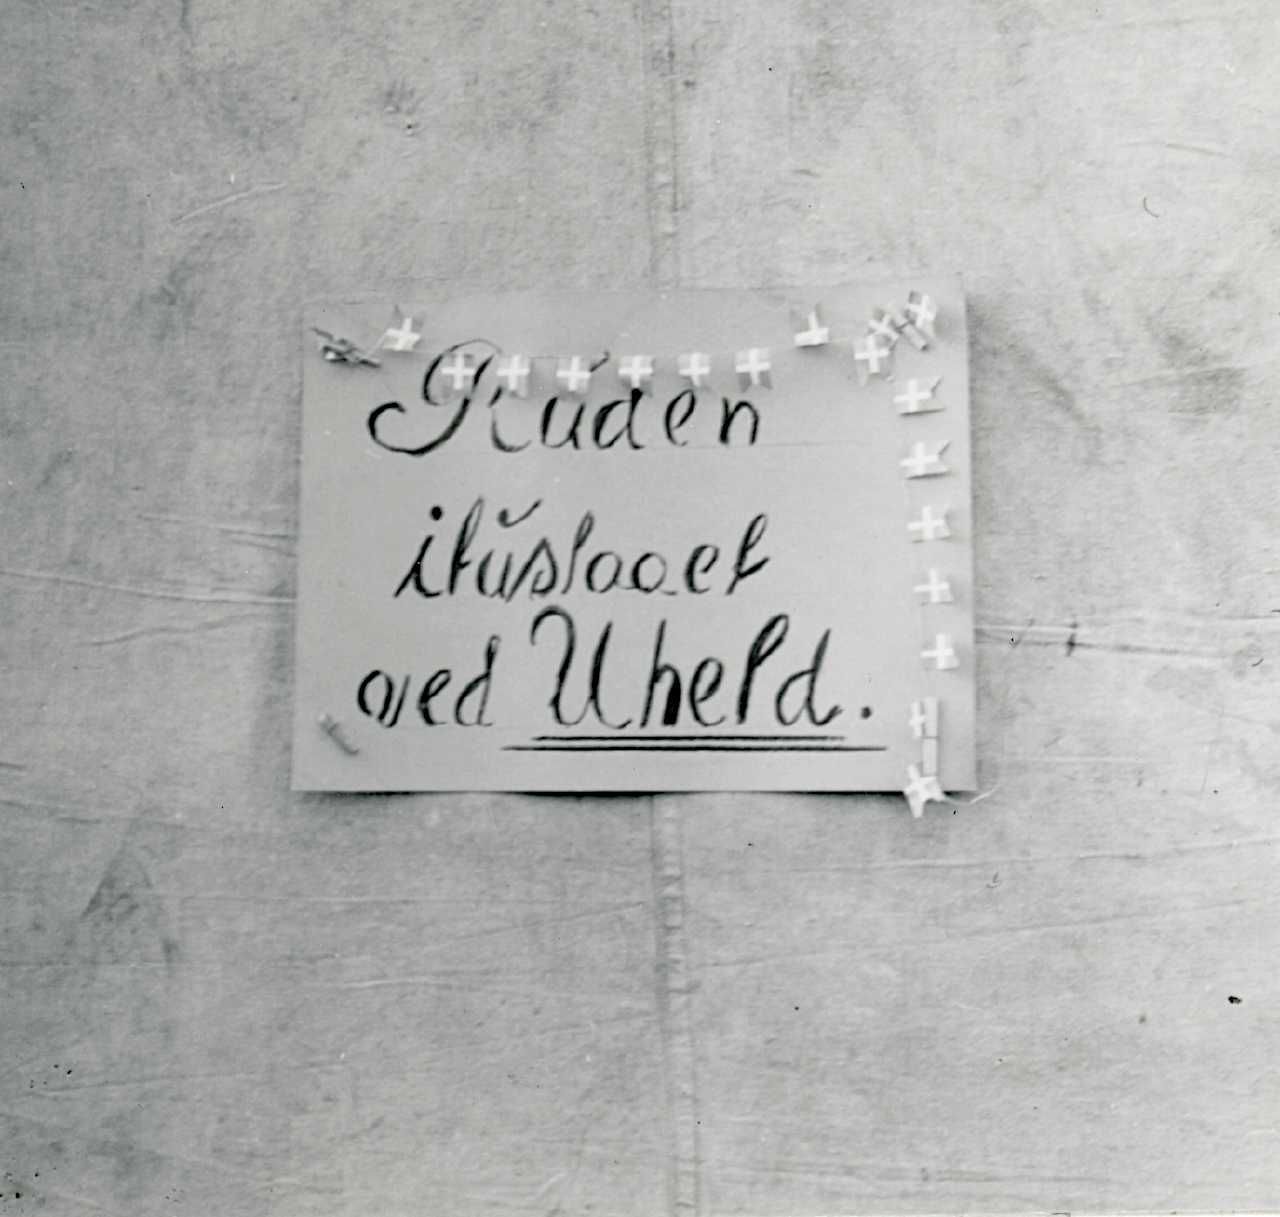 Ruden
ituslaaet
ved Uheld.